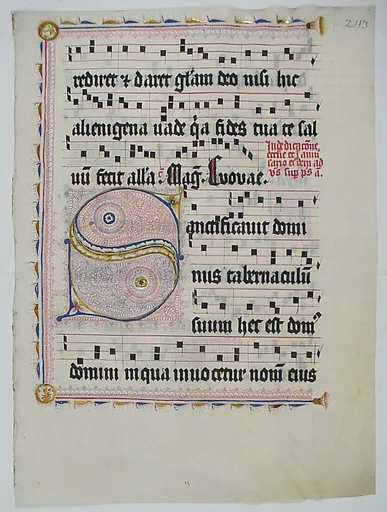 243
rediret ⁊ daret gl̄am deo nisi hic
alienigena uade q̇a fides tua te sal
uū fecit all'a. Mag. Euouae.
In dedicacōne
Sanctificauit domi
nus tabernaculū
suum hec est dom9
domini in qua inuocetur nom̄ eius